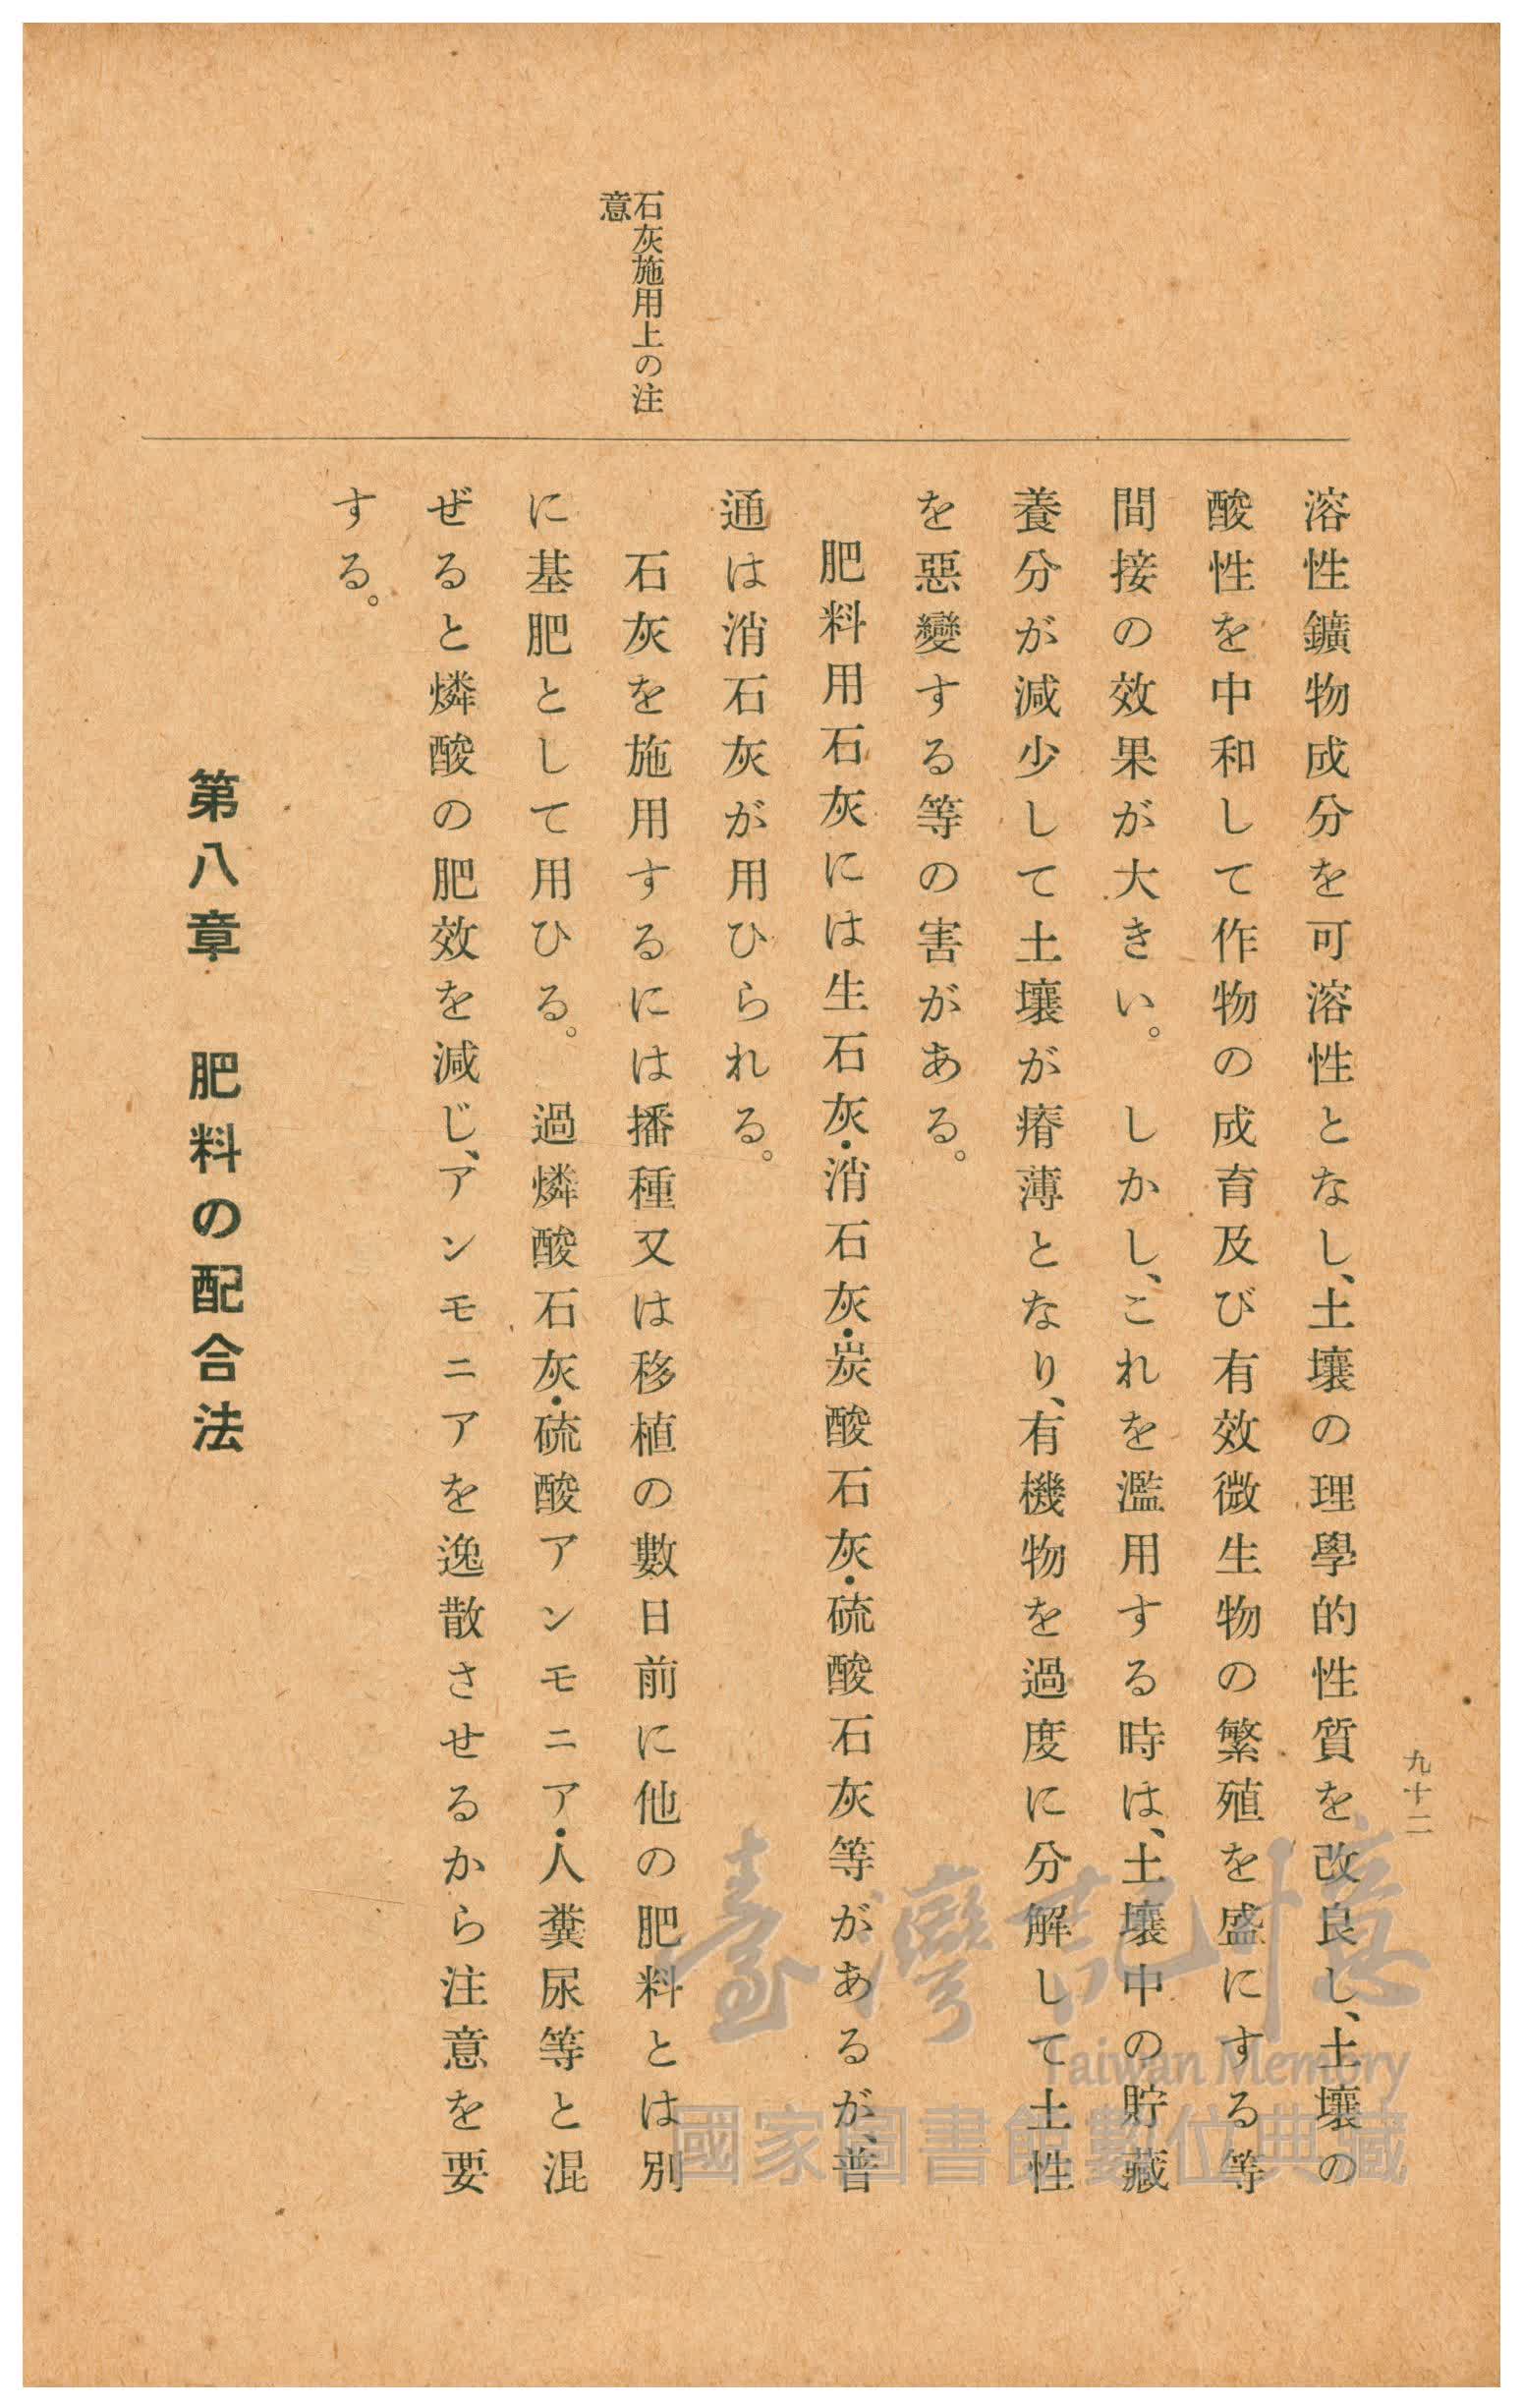 九十二
溶性鑛物成分を可溶性となし、土壤の理學的性質を改良し、土壤の
酸性を中和して作物の成育及び有效微生物の繁殖を盛にする等
間接の效果が大きい。しかし、これを濫用する時は、土壤中の貯藏
養分が減少して土壤が瘠薄となり、有機物を過度に分解して土性
を惡變する等の害がある。
肥料用石灰には生石灰・消石灰・炭酸石灰・硫酸石灰等があるが、普
通は消石灰が用ひられる。
石灰施用上の注
意
石灰を施用するには播種又は移植の數日前に他の肥料とは別
に基肥として用ひる。過燐酸石灰・硫酸アンモニア・人糞尿等と混
ぜると燐酸の肥效を減じ、アンモニアを逸散させるから注意を要
する。
第八章　肥料の配合法
臺灣記憶
Taiwan Memory
國家圖書館數位典藏